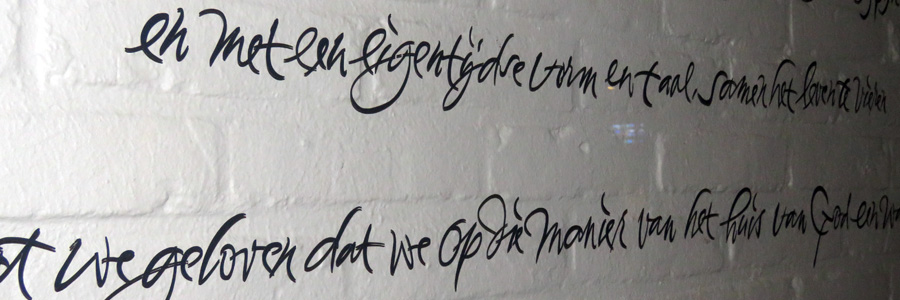 en met een eigentijdse vorm en taal, samen het leven te vieren
we geloven dat we op die manier van het huis van God een